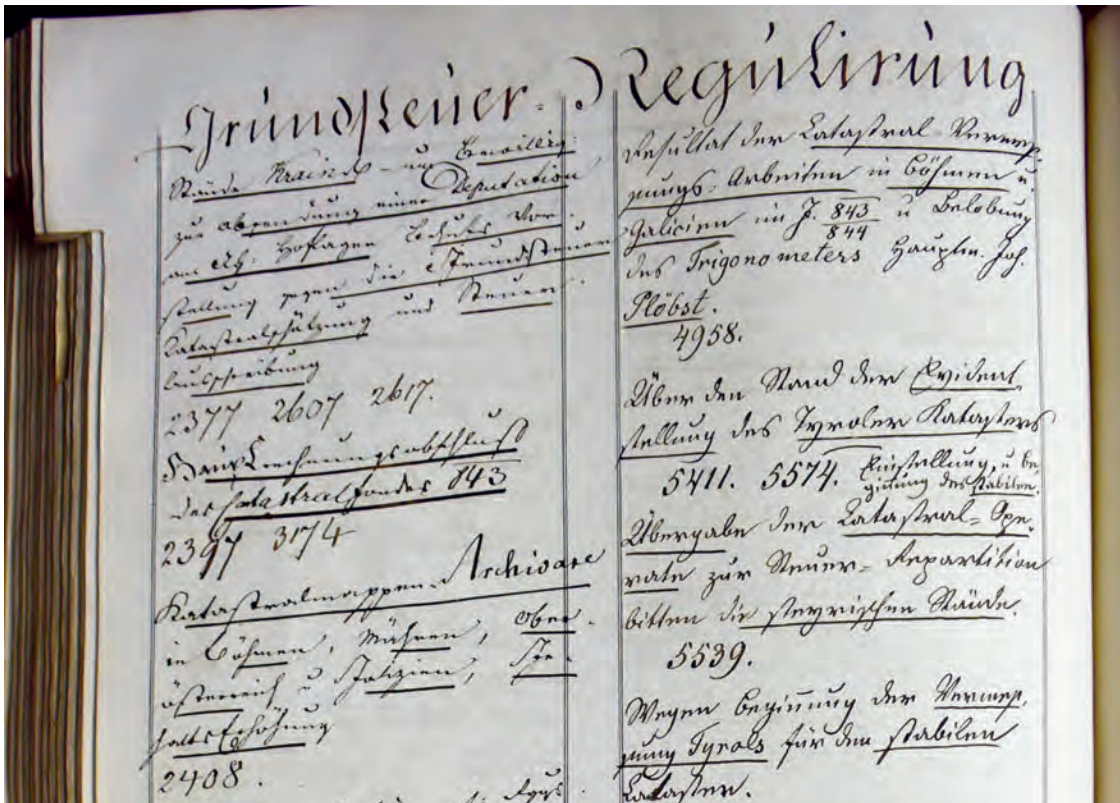 Grundsteuer-Regulirung
Stände Krain's - um Bewillig.
zur Absendung einer Deputation
am Ah. Hoflager behufs Vor-
stellung gegen die Grundsteuer
Katastralschätzung und Steuer-
Ausschreibung
2377 2607 2617.
Haupt rechnungsabschluß
des Catastralfondes 843
2397 3174
Katastralmappen Archivare
in Böhmen, Mähren, Ober-
österreich u Galizien, Ge-
halts Erhöhung
2408.
Resultat der Catastral Vermes-
sungs-Arbeiten in Böhmen u
Galicien im J. 843/844 u Belobung
des Trigonometers Hauptm. Joh.
Plöbst.
4958.
Über den Stand der Evident
stellung des Tyroler Katasters
5411. 5574. Einstellung, u Be-
ginnung des stabilen.
Übergabe der Catastral-Ope-
rate zur Steuer-Repartition
bitten die steyrischen Stände.
5539.
Wegen Beginnung der Vermes-
sung Tyrols für den stabilen
Cataster.